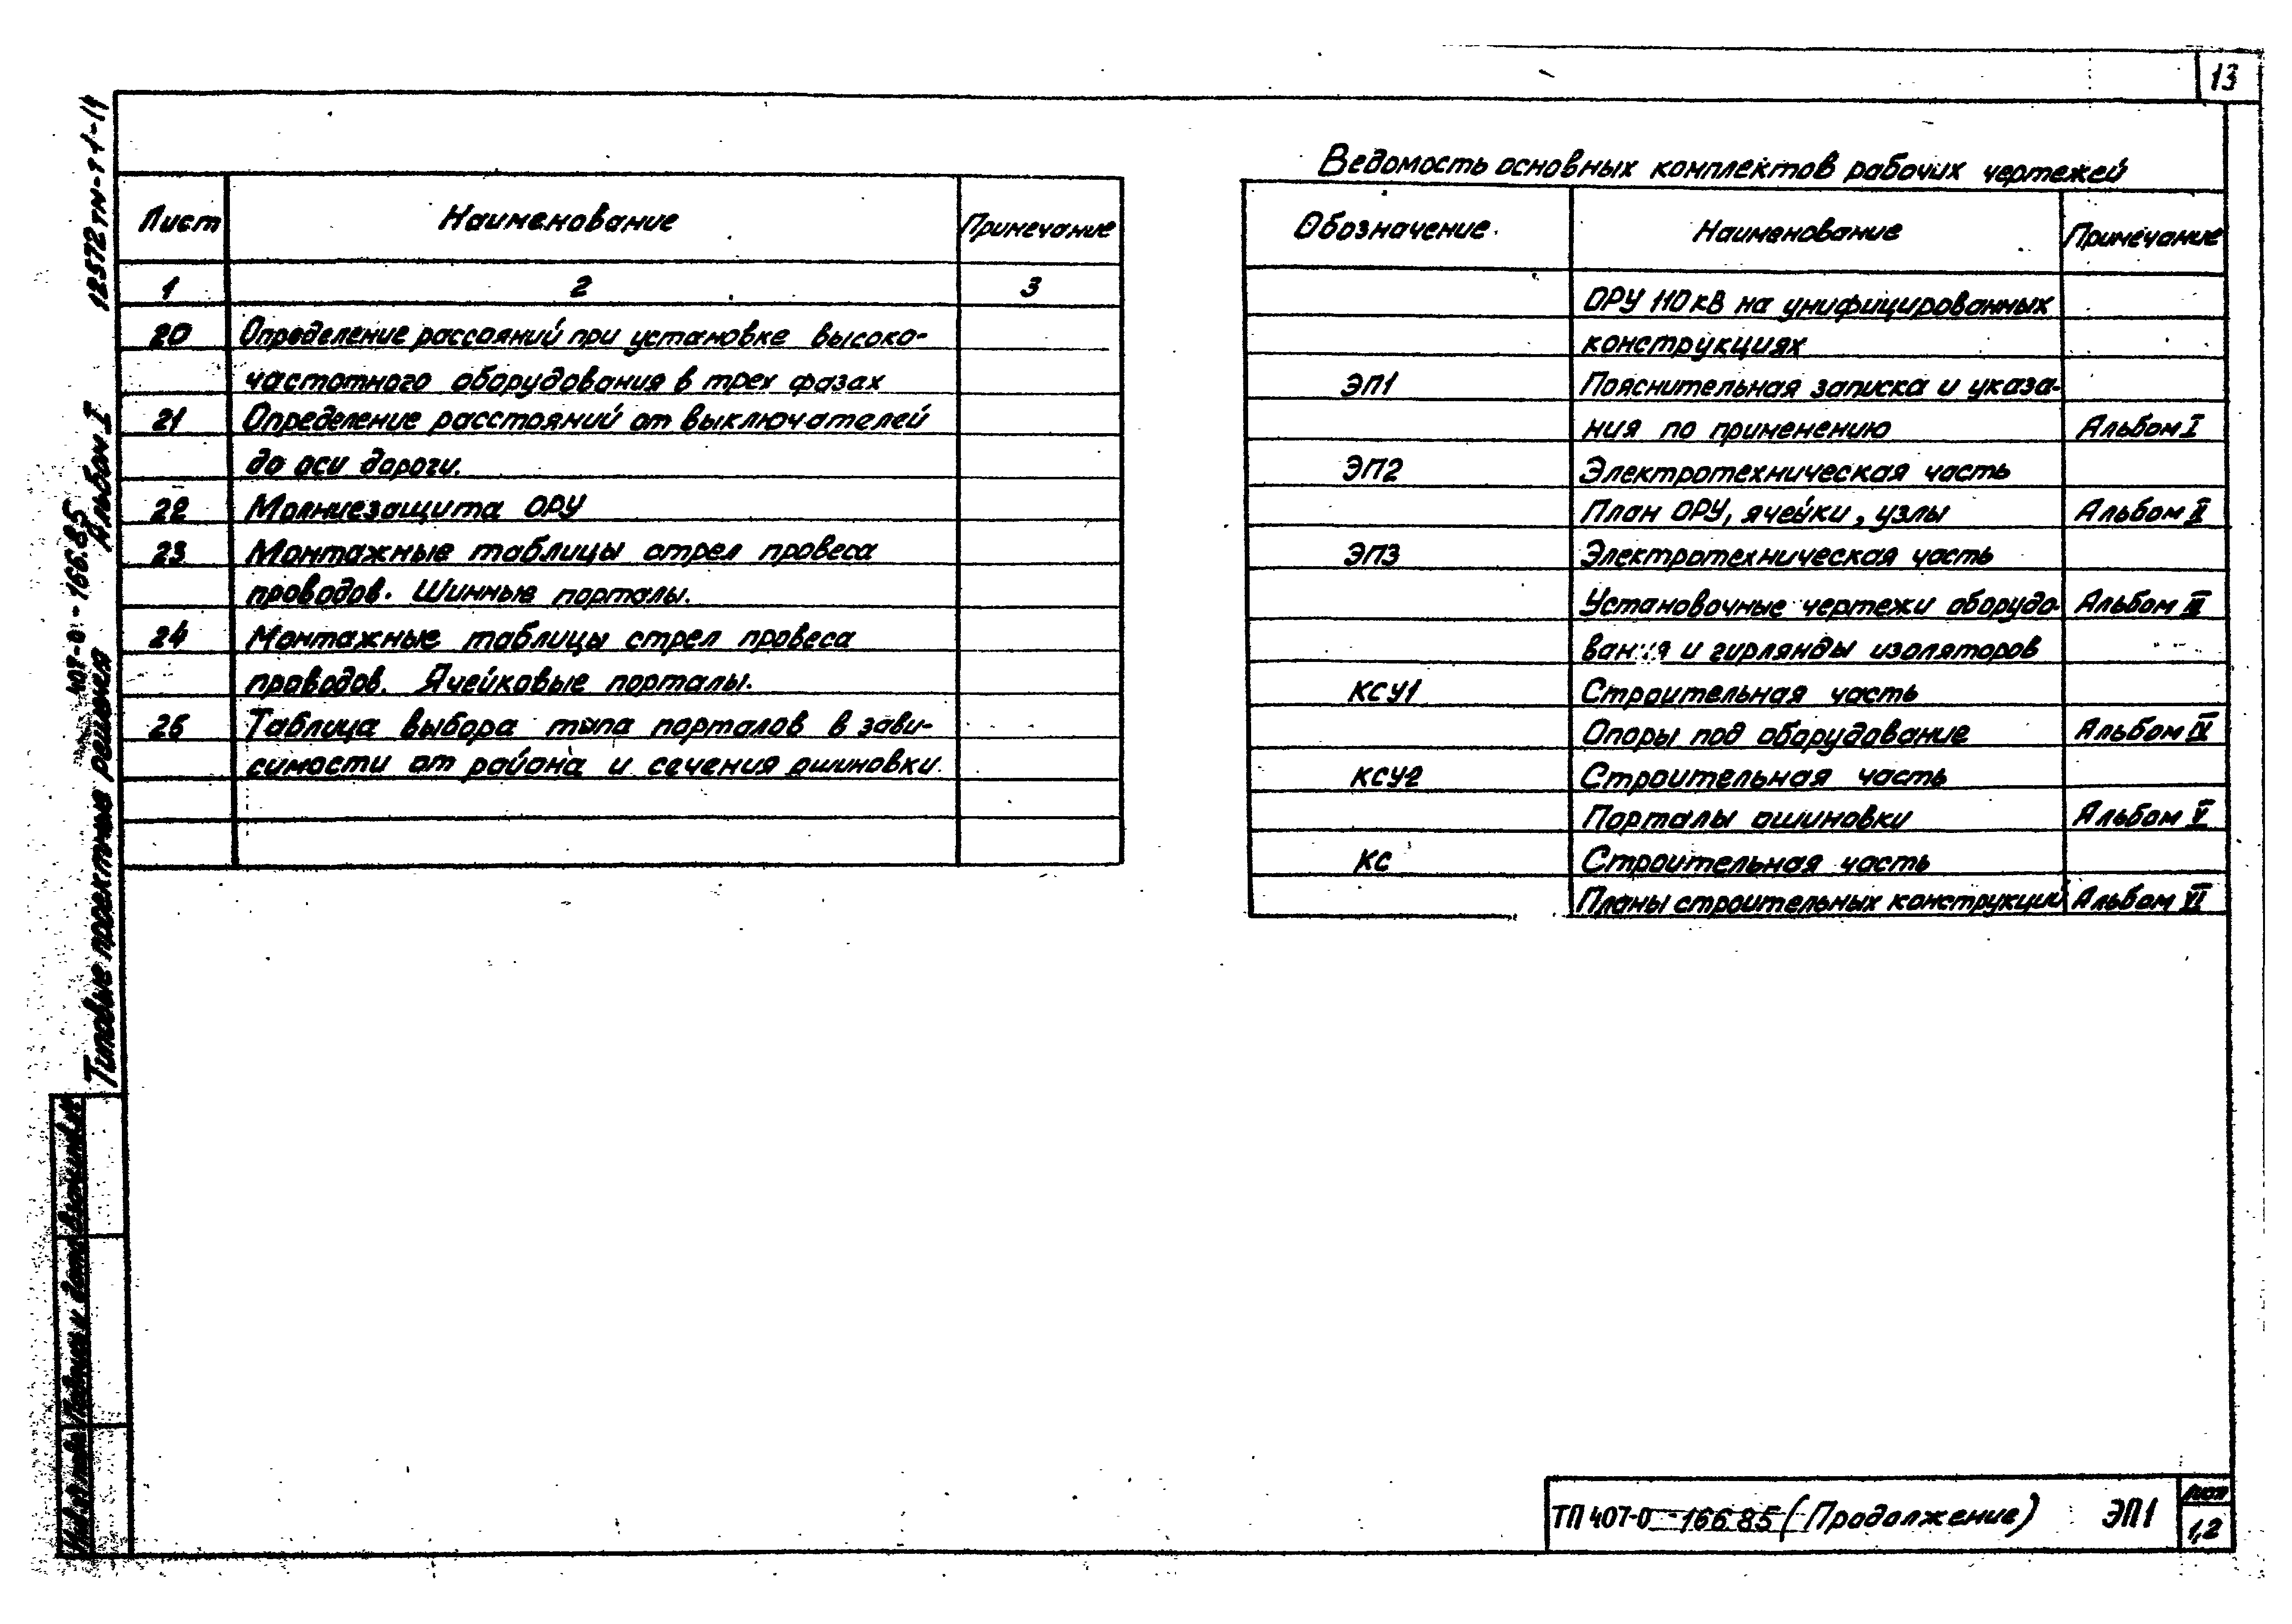 13
12572тм-т 1-14
Альбом I
407-0-166.85
Типовые проектные решения
Лист Наименование Примечание
1 2 3
20 Определение рассояний при установке высоко-
частотного оборудования в трех фазах
21 Определение расстояний от выключателей
до оси дороги.
22 Молниезащита ОРУ
23 Монтажные таблицы стрел провеса
проводов. Шинные порталы.
24 Монтажные таблицы стрел провеса
проводов. Ячейковые порталы.
25 Таблица выбора типа порталов в зави-
симости от района и сечения ошиновки.
Ведомость основных комплектов рабочих чертежей
Обозначение Наименование Примечание
ОРУ 110 кВ на унифицированных
конструкциях
ЭП1 Пояснительная записка и указа-
ния по применению Альбом I
ЭП2 Электротехническая часть
План ОРУ, ячейки, узлы Альбом II
ЭП3 Электротехническая часть
Установочные чертежи оборудо- Альбом III
вания и гирлянды изоляторов
КСУ1 Строительная часть
Опоры под оборудование Альбом IV
КСУ2 Строительная часть
Порталы ошиновки Альбом V
КС Строительная часть
Планы строительных конструкций Альбом VI
Подпись и дата
ТП 407-0-166 85 (Продолжение) ЭП1
Лист
1,2